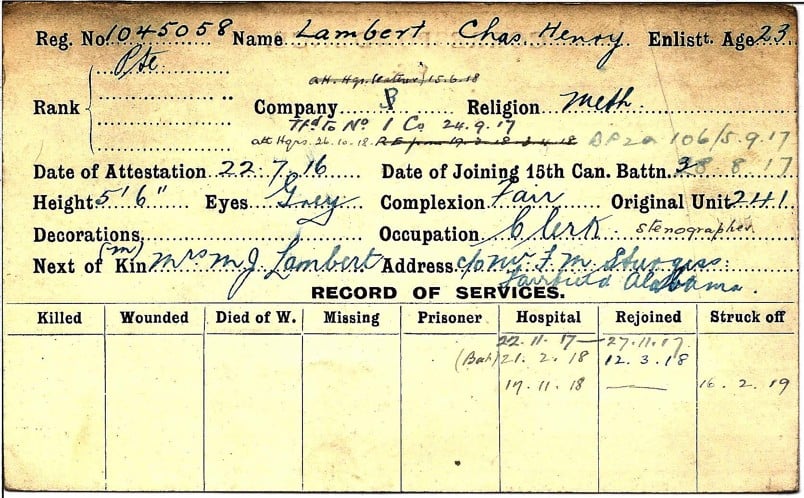 Reg. No. 1045058 Name Lambert Chas. Henry. Enlistt. Age 23
Pte
att. Hqrs. 15.6.18
Rank Company Religion Meth.
Tfd to No 1 Co 24.9.17
att Hqrs. 26.10.18. 106/5.9.17
Date of Attestation 22.7.16 Date of Joining 15th Can. Battn. 8 8 17
Height 5'6" Eyes Grey Complexion Fair Original Unit 241
Decorations Occupation Clerk. stenographer
(m)
Next of Kin Mrs M J Lambert Address c/o Mr F. M. Sturgiss.
Fairfield Alabama.
RECORD OF SERVICES.
Killed Wounded Died of W. Missing Prisoner Hospital Rejoined Struck off
22.11.17 — 27.11.17.
(Bah) 21.2.18 12.3.18
17.11.18 — 16.2.19